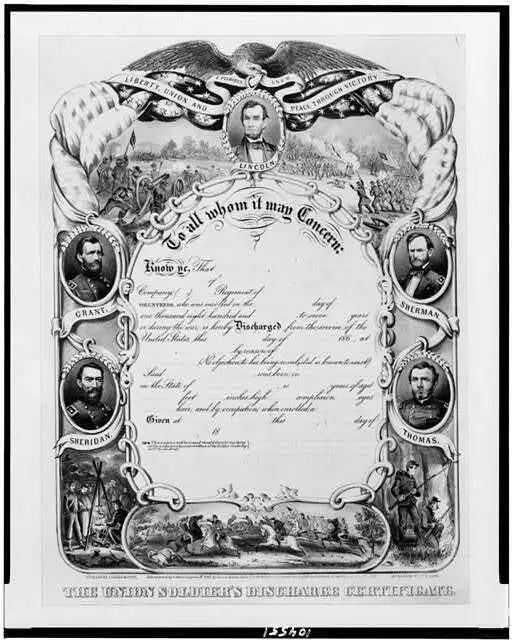 E PLURIBUS UNUM
LIBERTY, UNION AND PEACE THROUGH VICTORY
LINCOLN.
To all whom it may Concern:
Know ye, That
of
Company ( ) Regiment of
VOLUNTEERS, who was enrolled on the day of
one thousand eight hundred and to serve years
or during the war, is hereby Discharged from the service of the
United States, this day of 186 , at
by reason of
(No objection to his being re-enlisted is known to exist)
Said was born in
in the State of is years of age
feet inches high complexion eyes
hair, and by occupation, when enrolled, a
Given at this day of
18
GRANT.
SHERMAN.
SHERIDAN.
THOMAS.
THE UNION SOLDIER'S DISCHARGE CERTIFICATE.
104551